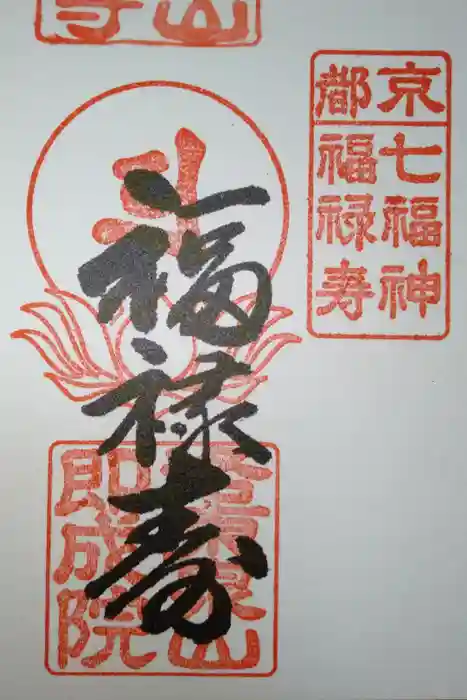 京都
七福神
福禄寿
福禄寿
即成院